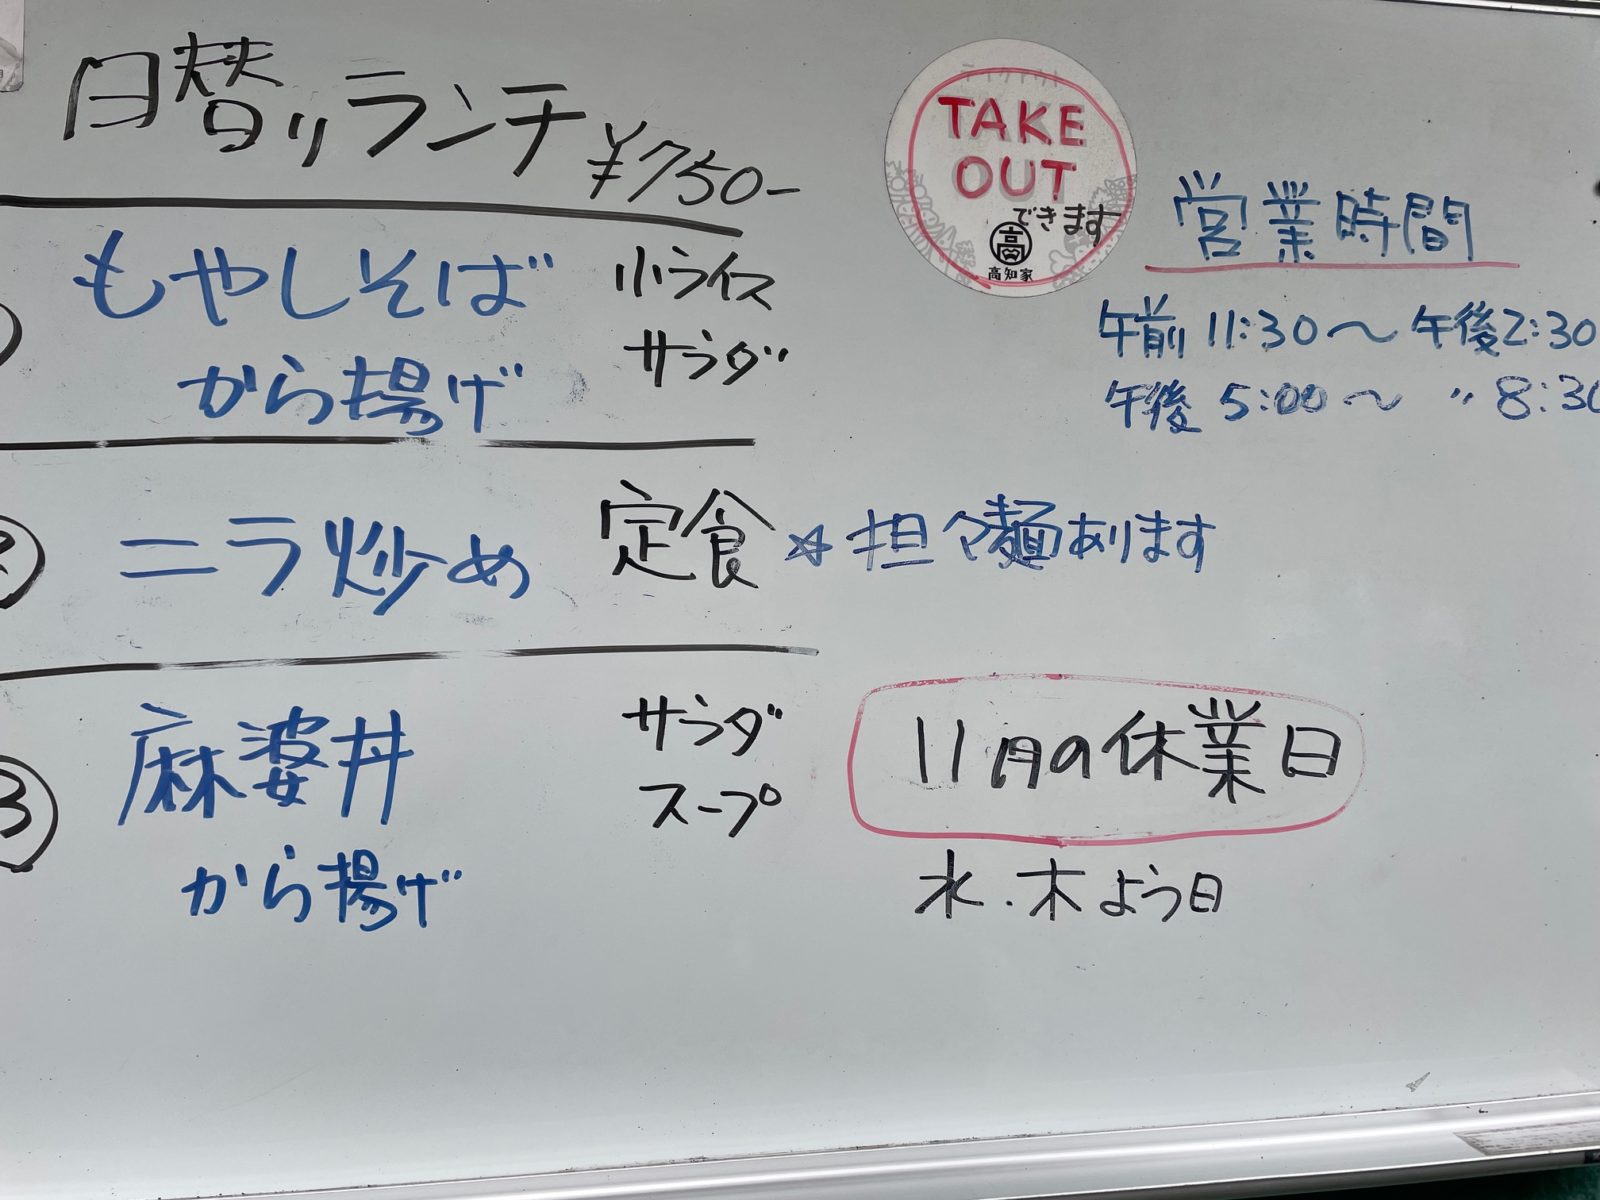 日替りランチ ¥750-
① もやしそば 小ライス
から揚げ サラダ
② ニラ炒め 定食 ☆担々麺あります
③ 麻婆丼 サラダ
スープ
から揚げ
テイクアウト
TAKE
OUT
できます
高
高知家
営業時間
午前 11:30〜午後2:30
午後 5:00〜 〃 8:30
11月の休業日
水.木よう日